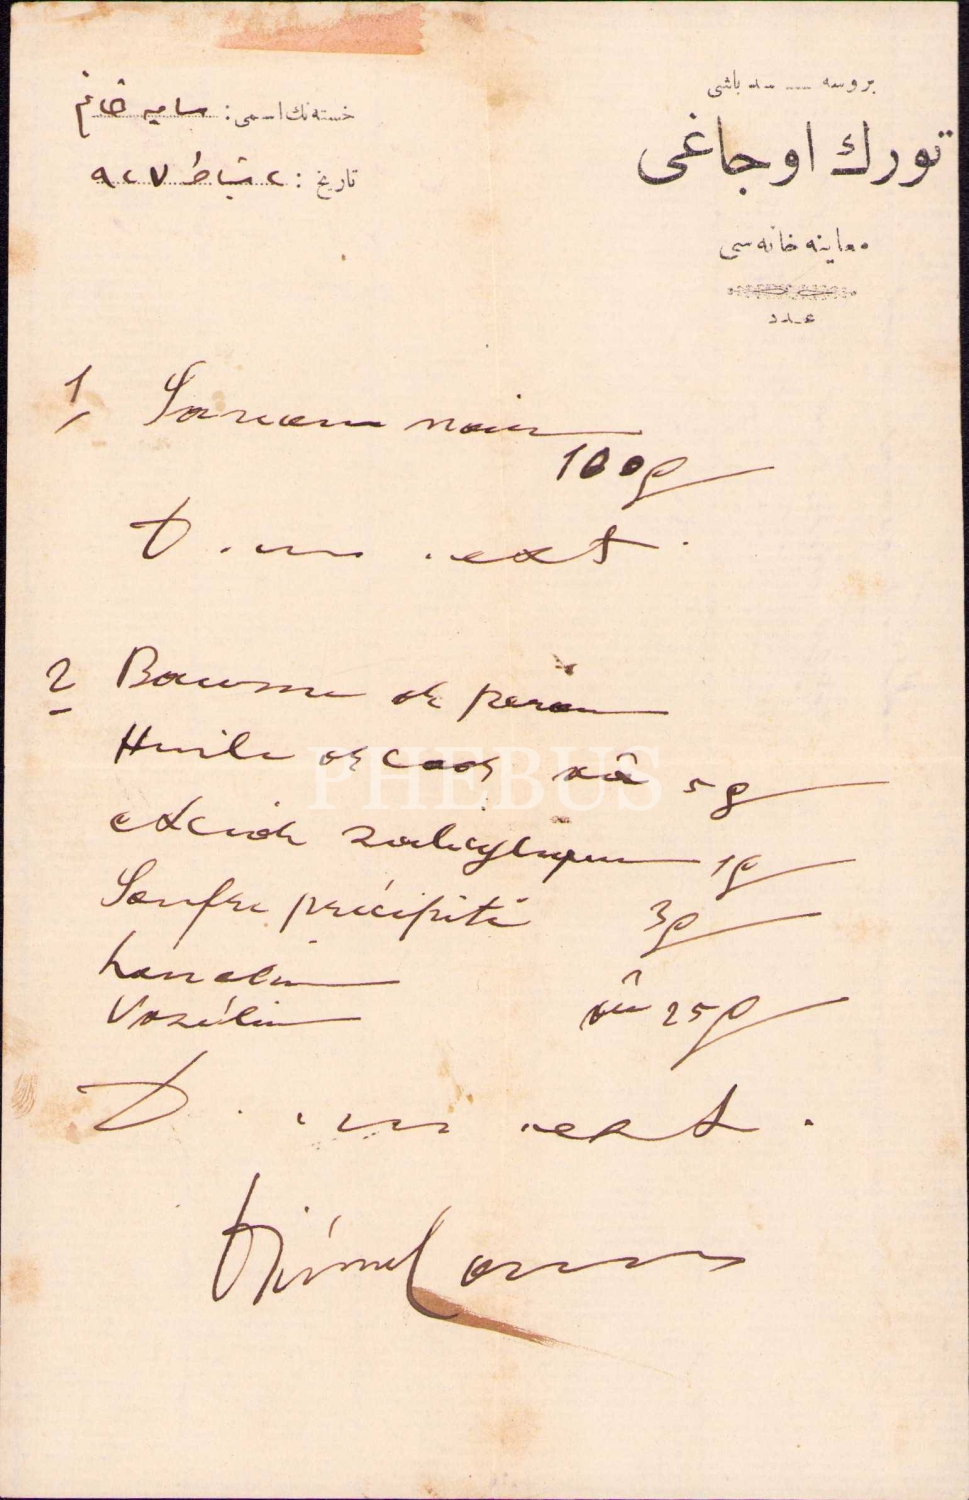 بروسه — سد باشی
تورك اوجاغی
معاینه خانه سی
عدد
خسته نك اسمی: سامیه خانم
تاریخ: ٢ شباط ٩٢٧
1 Savon noir
100g
D. us. ext.
2 Baume de perou
Huile de cade aâ 5g
Acide salicylique 1g
Soufre précipité 3g
Lanolin
Vaselin aâ 25g
D. us. ext.
PHEBUS